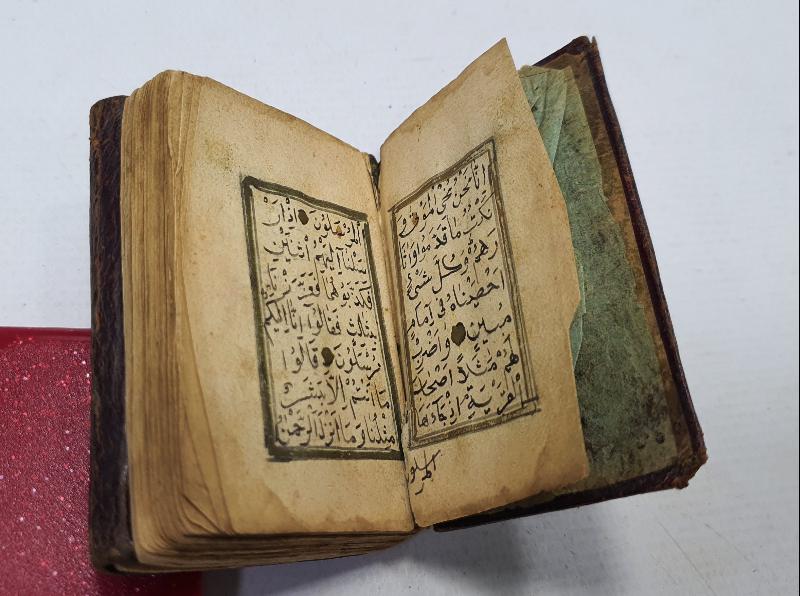 انا نحن نحي الموتى و
نكتب ما قدموا واثا
رهم وكل شئ
احصيناه في امام
مبين واضرب
لهم مثلاً اصحاب
القرية اذ جاءها
المرسلون
المرسلون اذ ار
سلنا اليهم اثنين
فكذبوهما فعززنا
بثالث فقالوا انا اليكم
مرسلون قالوا
ما انتم الا بشر
مثلنا وما انزل الرحمن